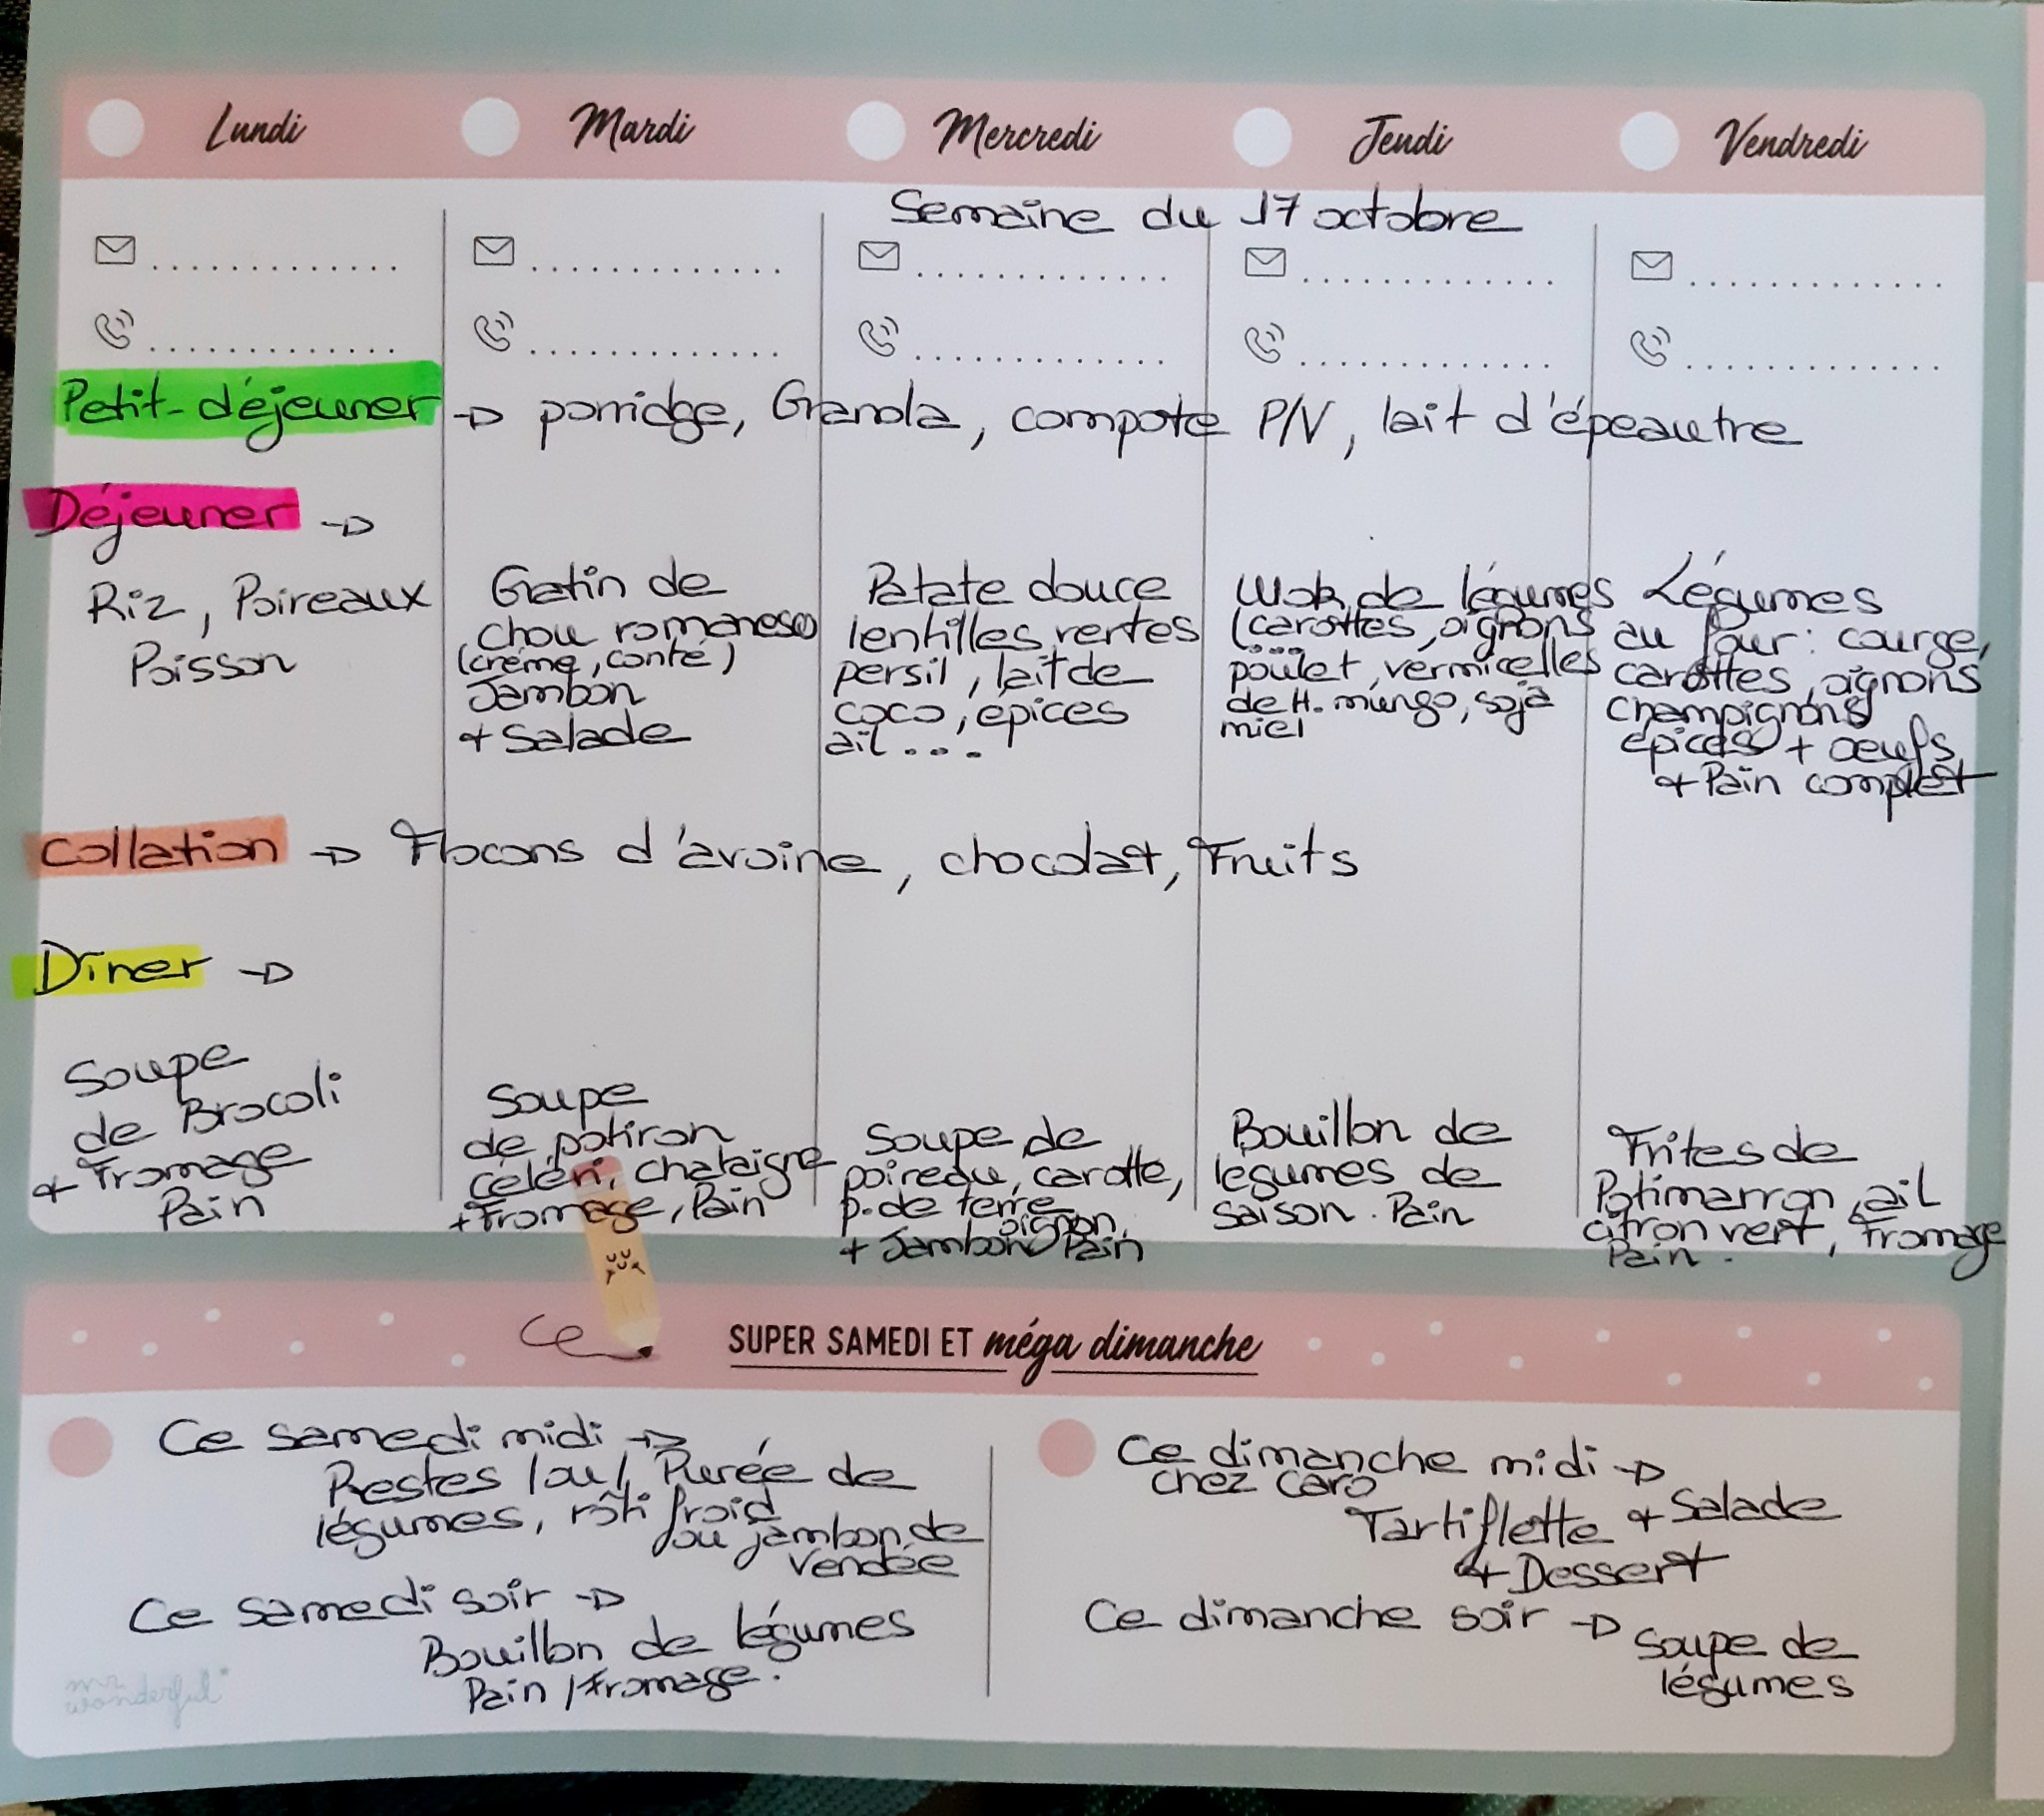 Lundi
Mardi
Mercredi
Jeudi
Vendredi
Semaine du 17 octobre
Petit-déjeuner → porridge, Granola, compote P/V, lait d'épeautre
Déjeuner →
Riz, Poireaux
Poisson
Gratin de
chou romanesco
(crème, conté)
Jambon
+ Salade
Patate douce
lentilles vertes
persil, lait de
coco, épices
ail...
Wok de légumes
(carottes, oignons
poulet, vermicelles
de H. mungo, soja
miel
Légumes
au four : courge,
carottes, oignons
champignons
épices + oeufs
+ Pain complet
Collation → Flocons d'avoine, chocolat, Fruits
Dîner →
Soupe
de Brocoli
+ Fromage
Pain
Soupe
de potiron
céleri, chataigne
+ Fromage, Pain
Soupe de
poireau, carotte,
p. de terre
oignon,
+ Jambon Pain
Bouillon de
légumes de
saison. Pain
Frites de
Potimarron, ail
citron vert, Fromage
Pain.
SUPER SAMEDI ET méga dimanche
Ce samedi midi →
Restes /ou/ Purée de
légumes, rôti froid
ou jambon de
Vendée
Ce samedi soir →
Bouillon de légumes
Pain / Fromage.
Ce dimanche midi →
chez Caro
Tartiflette + Salade
+ Dessert
Ce dimanche soir →
Soupe de
légumes
mr
wonderful*